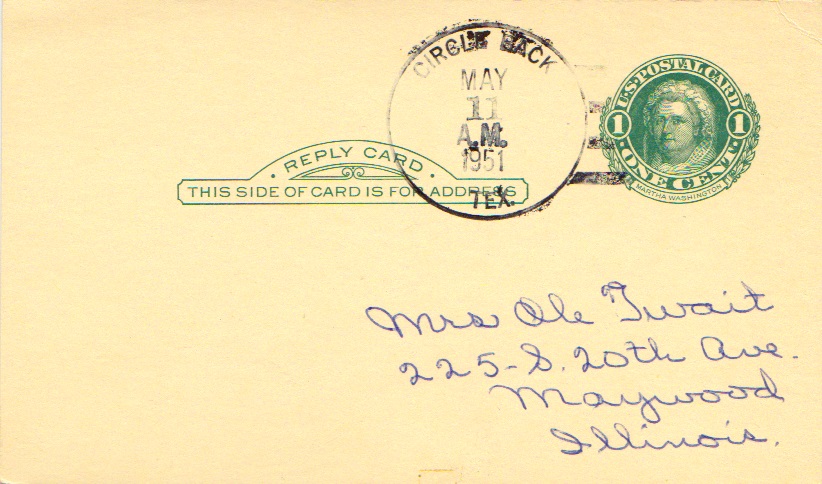 CIRCLE BACK
MAY
11
A.M.
1951
TEX.
U.S. POSTAL CARD
1 1
ONE CENT
MARTHA WASHINGTON
REPLY CARD
THIS SIDE OF CARD IS FOR ADDRESS
Mrs Ole Twait
225-S. 20th Ave.
Maywood
Illinois.